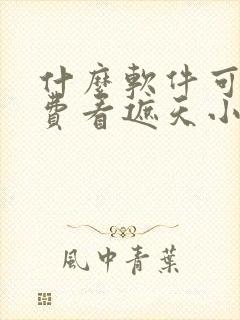 什麼軟件可
費看遮天小
風中青葉